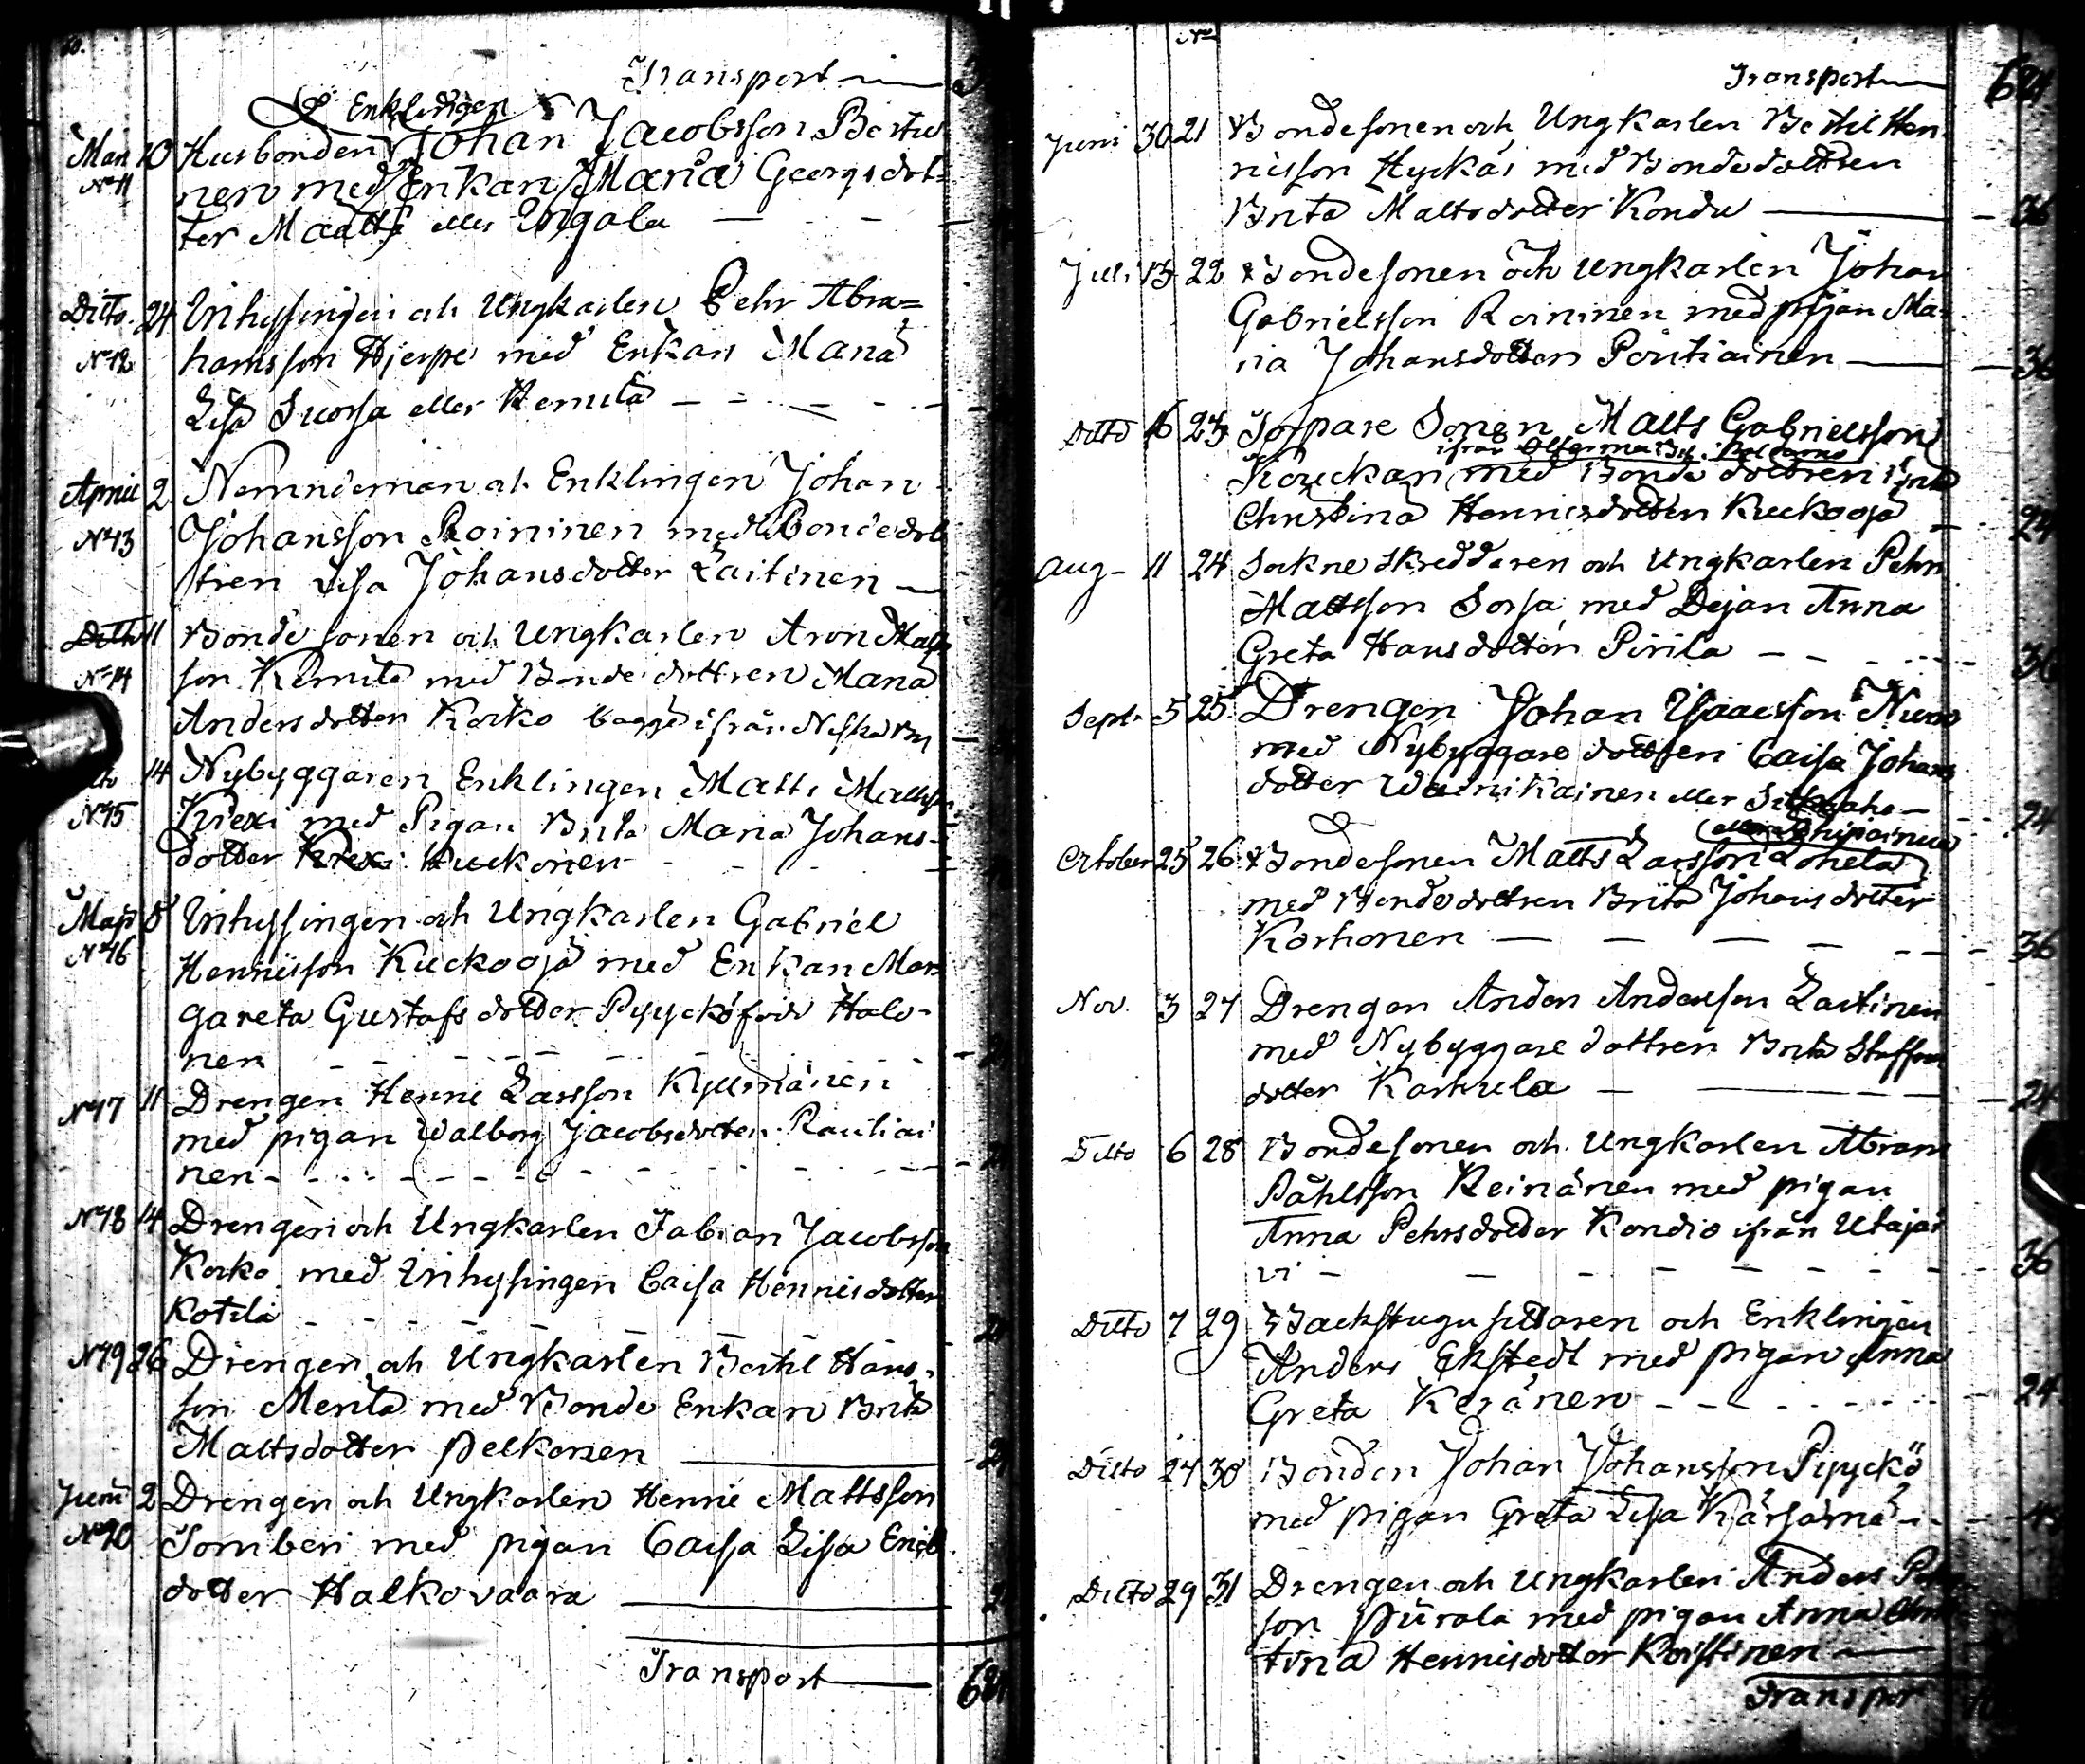 Transport
Enklingen
Mart 10 Husbonden Johan Jacobsson
No 11 nen med Enkan Maria Georgsdot-
ter Maatt eller Ungala
Ditto 24 Inhysingen och Ungkarlen Pehr Abra=
No 12 hamsson Hjerpe med Enkan Maria
Lisa Suorsa eller Remula
April 2 Nemndeman och Enklingen Johan
No 13 Johansson Roininen med Bondedot
tren Lisa Johansdotter Laitinen
Ditto 11 Bonde sonen och Ungkarlen Aron Matts
No 14 son Remula med Bonde dottren Maria
Anders dotter Korko bägge ifrån Niska By
14 Nybyggaren Enklingen Matts Mattsson
No 15 Krexi med Pigan Brita Maria Johans-
dotter Huckonen
Maji 8 Inhysingen och Ungkarlen Gabriel
No 16 Hennisson Kuckooja med Enkan Mar
gareta Gustafs dotter Pyyckö född Halo-
nen
No 17 11 Drengen Henric Larsson Kyllmänen
med pigan Walborg Jacobsdotter Rautiai
nen
No 18 14 Drengen och Ungkarlen Fabian Jacobsson
Korko med Inhysingen Caisa Hennisdotter
Kotila
No 19 26 Drengen och Ungkarlen Bertil Hans-
son Merila med Bonde Enkan Brita
Mattsdotter Pelkonen
Juni 2 Drengen och Ungkarlen Henric Mattsson
No 20 Tomberi med pigan Caisa Lisa Erics
dotter Halkovaara
Transport 624
No
Transport 624
Juni 30 21 Bondesonen och Ungkarlen Bertil Hen
nisson Hyckäi med Bonde dottren
Brita Matts dotter Kondu 36
Juli 13 22 Bondesonen och Ungkarlen Johan
Gabrielsson Roininen med pigan Ma-
ria Johansdotter Pentiainen 36
Ditto 16 23 Torpare Sonen Matts Gabrielsson
ifrån
med Bonde dottren Brita
Christina Hennisdotter Kuckooja 24
Aug 11 24 Sockne Skreddaren och Ungkarlen Pehr
Mattsson Sorsa med Dejan Anna
Greta Hansdotter Pirila 36
Sept. 5 25 Drengen Johan Isaacsson
med Nybyggare dottren Caisa Johans
dotter Wainikainen eller 24
eller
October 25 26 Bondesonen Matts Larsson Lohela
med Bonde dottren Brita Johans dotter
Korhonen 36
Nov. 3 27 Drengen Anders Andersson Laitinen
med Nybyggare dottren Brita Staffans
dotter Karhula 24
Ditto 6 28 Bondesonen och Ungkarlen Abram
Påhlsson Keinänen med pigan
Anna Pehrsdotter Kondio ifrån Utajär
vi 36
Ditto 7 29 Backstugu sittaren och Enklingen
Anders Ekstedt med pigan Anna
Greta Keränen 24
Ditto 27 30 Bonden Johan Johansson Pyyckö
med pigan Greta Lisa Kärsämä 48
Ditto 29 31 Drengen och Ungkarlen Anders
son Piirala med pigan Anna Chris
tina Hennisdotter Koistinen
Transport